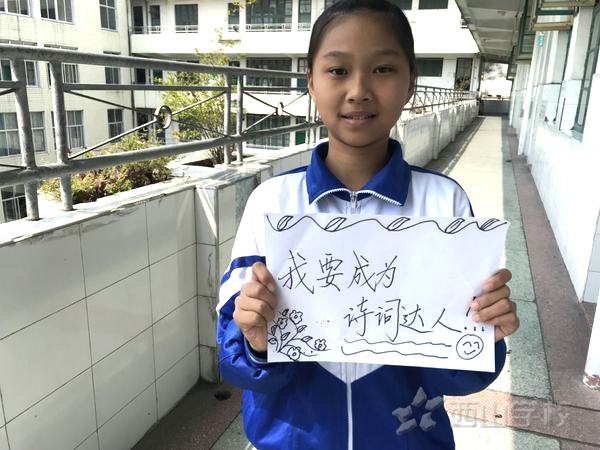 我要成为
…诗词达人!!
西山学校